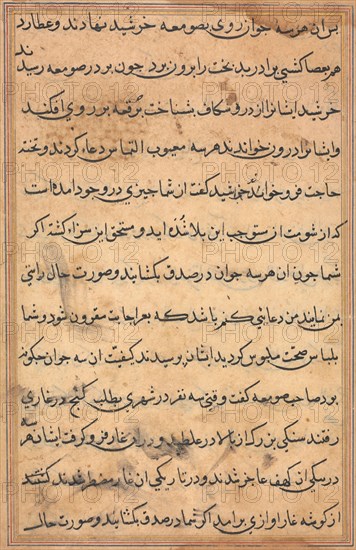 بران هر سه جوان روی بصومعه خرشید نهادند و عطارد
هم بعصا کشی برادر بدبخت را برون برد چون بر در صومعه رسیدند
خرشید ایشانرا از در و شکاف بشناخت برقعه بر روی افکند
و ایشانرا درون خواندند هر سه معیوب التماس دعا کردند و تخته
حاجت فرو خواندند خرشید کفت از شما چیزی در وجود امده است
که از شومت ان مستوجب این بلا شده اید و مستحق این سزا کشته اکر
شما چون ان هر سه جوان در صدق بکشایند و صورت حال راستی
بمن نمایند من دعائی کنم باشد که بعز اجابت مقرون شود و شما
بلباس صحت ملبوس کردید ایشان پرسیدند کیفیت ان سه جوان چکونه
بود صاحب صومعه کفت وقتی سه نفر در شهری بطلب کنج در غاری
رفتند سنکی بزرک از بالا در غلطید و در غار فرو کرفت ایشان هر سه
در ان کهف عاجز شدند و در تاریکی ان غار مضطر شدند
از کوشه غار اوازی برامد اکر شما در صدق بکشایند و صورت حال